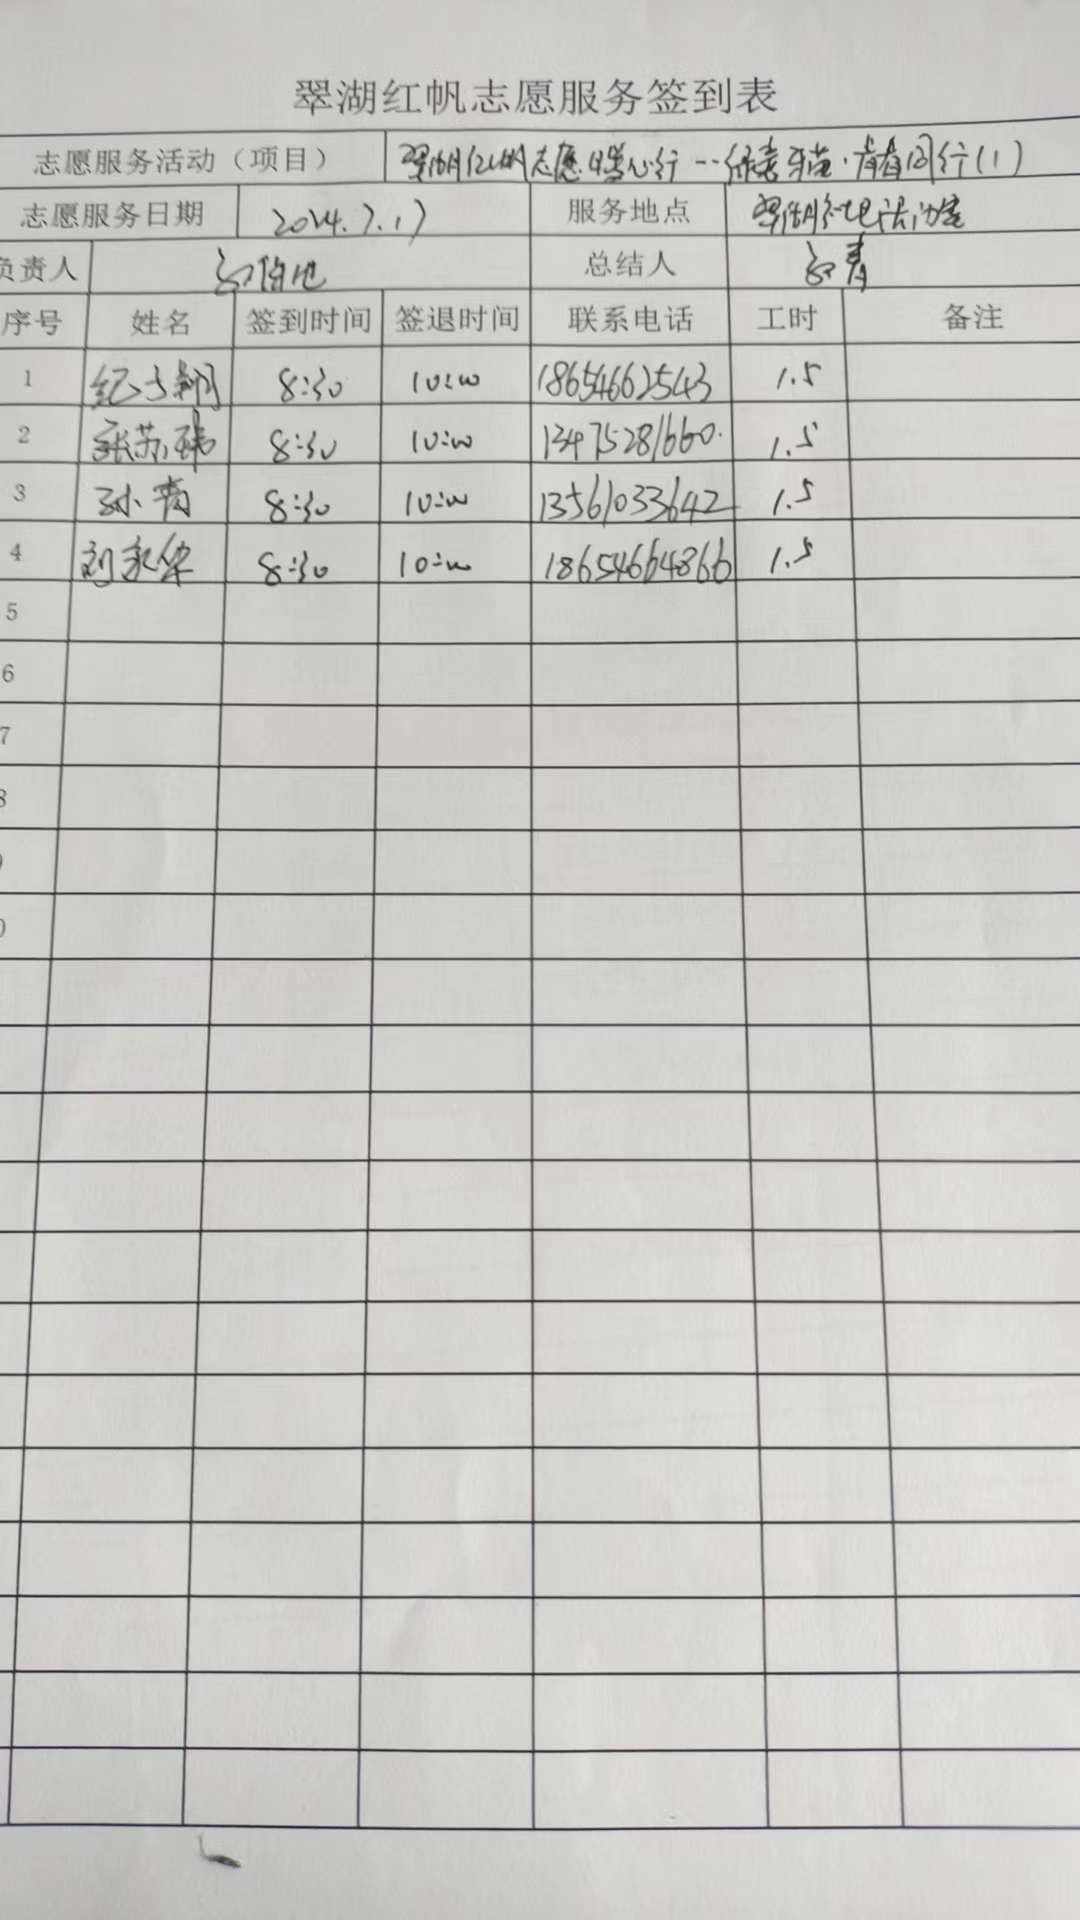 翠湖红帆志愿服务签到表
志愿服务活动（项目） 翠湖红帆志愿暖心行 青春同行(1)
志愿服务日期 2024.7.17 服务地点 翠湖社区活动室
负责人 总结人
序号 姓名 签到时间 签退时间 联系电话 工时 备注
1 8:30 10:00 18654662543 1.5
2 张苏瑞 8:30 10:00 13475281660. 1.5
3 孙青 8:30 10:00 13561033642 1.5
4 刘永华 8:30 10:00 18654664866 1.5
5
6
7
8